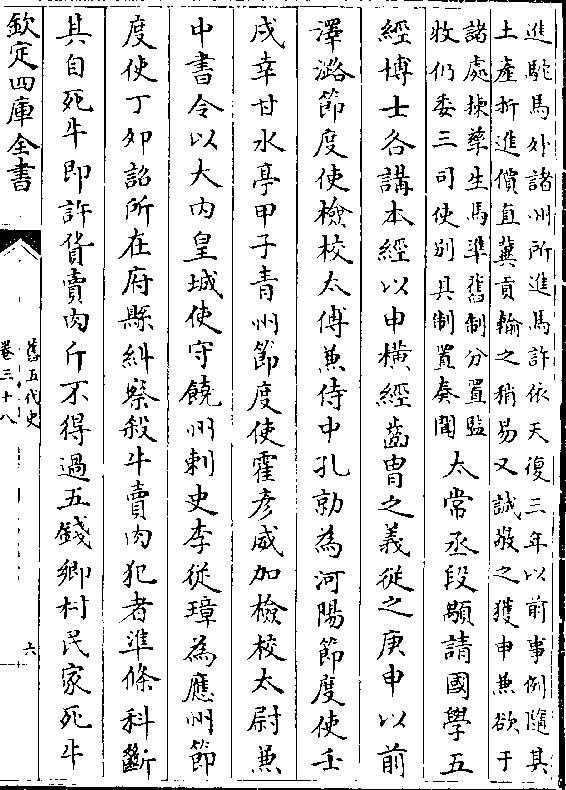 進駝馬外諸州所進馬許依天復三年以前事例隨其
土產折進價直冀貢輸之稍易又誠敬之獲申兼欲于
諸處揀孳生馬準舊制分置監
牧仍委三司使別具制置奏聞
太常丞段顒請國學五
經博士各講本經以申橫經齒胄之義從之庚申以前
澤潞節度使檢校太傅兼侍中孔勍為河陽節度使壬
戌幸甘水亭甲子青州節度使霍彥威加檢校太尉兼
中書令以大內皇城使守饒州刺史李從璋為應州節
度使丁卯詔所在府縣糾察殺牛賣肉犯者準條科斷
其自死牛即許貨賣肉斤不得過五錢鄉村民家死牛
欽定四庫全書
舊五代史
卷三十八
六